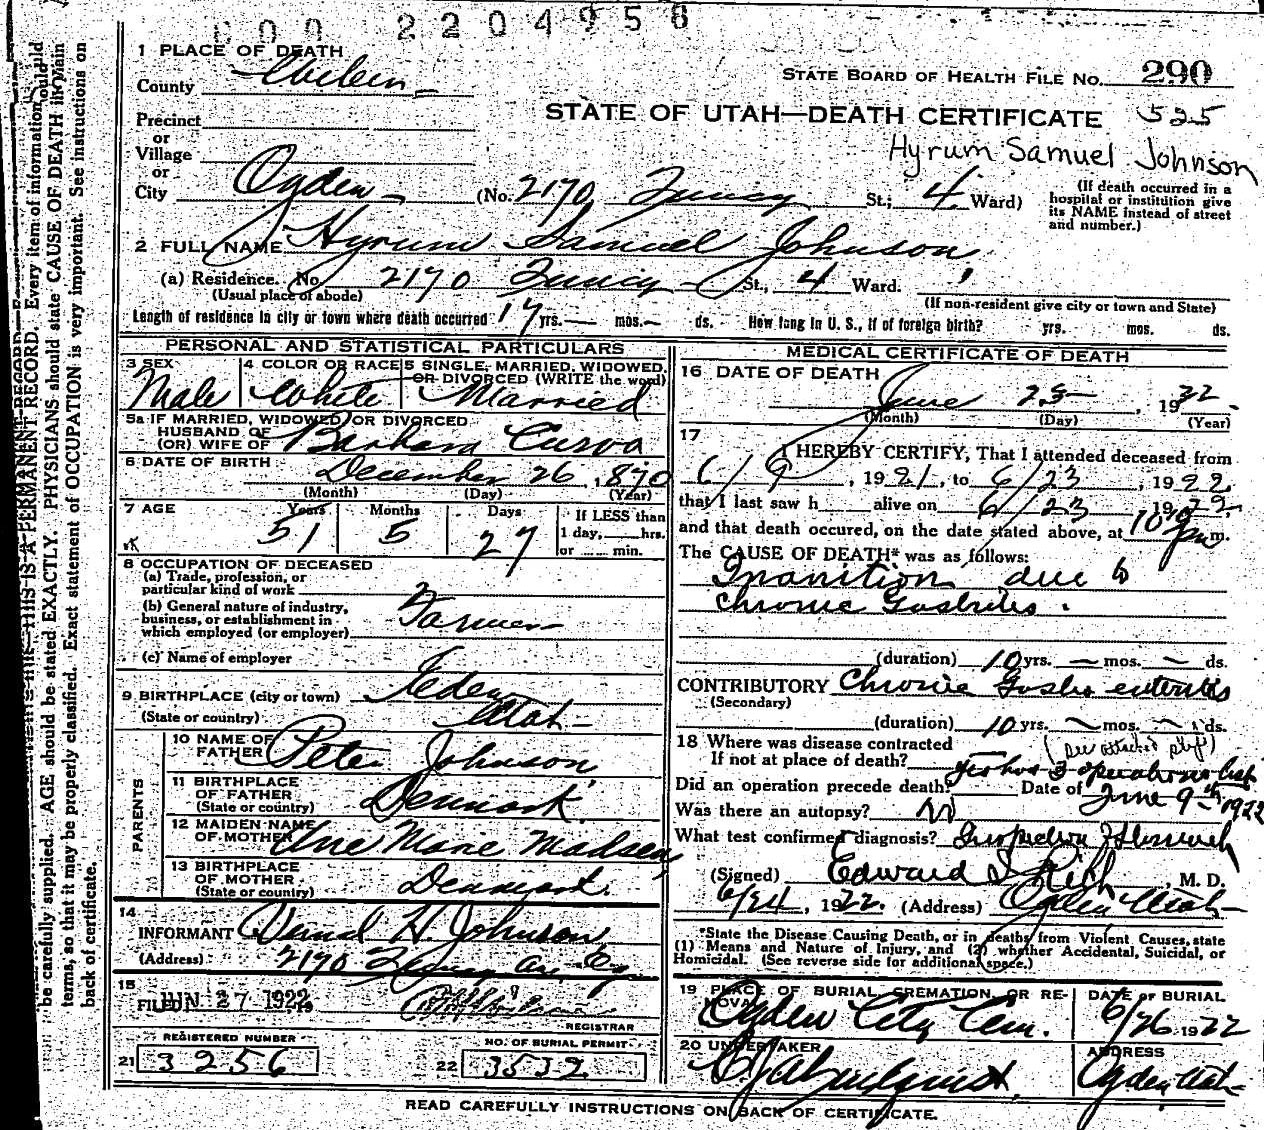 600 2204956
1 PLACE OF DEATH
County Weber
STATE BOARD OF HEALTH FILE NO. 290
STATE OF UTAH—DEATH CERTIFICATE 525
Hyrum Samuel Johnson
Precinct
or
Village
or
City Ogden (No. 2170 Quincy St; 4 Ward)
(If death occurred in a
hospital or institution give
its NAME instead of street
and number.)
2 FULL NAME Hyrum Samuel Johnson
(a) Residence. No. 2170 Quincy St., 4 Ward.
(Usual place of abode) (If non-resident give city or town and State)
Length of residence in city or town where death occurred 17 yrs. — mos. — ds. How long in U. S., if of foreign birth? yrs. mos. ds.
PERSONAL AND STATISTICAL PARTICULARS
3 SEX Male
4 COLOR OR RACE White
5 SINGLE, MARRIED, WIDOWED,
OR DIVORCED (WRITE the word)
Married
5a IF MARRIED, WIDOWED, OR DIVORCED
HUSBAND OF
(OR) WIFE OF Barbara
6 DATE OF BIRTH December 26, 1870
(Month) (Day) (Year)
7 AGE Years Months Days If LESS than
51 5 27 1 day, hrs.
or min.
8 OCCUPATION OF DECEASED
(a) Trade, profession, or
particular kind of work
(b) General nature of industry,
business, or establishment in
which employed (or employer) Farmer
(c) Name of employer
9 BIRTHPLACE (city or town)
(State or country) Utah
PARENTS
10 NAME OF
FATHER Peter Johnson
11 BIRTHPLACE
OF FATHER
(State or country) Denmark
12 MAIDEN NAME
OF MOTHER Ane Marie Madsen
13 BIRTHPLACE
OF MOTHER
(State or country) Denmark
14
INFORMANT H. Johnson
(Address) 2170
15
FILED JUN 27 1922
REGISTRAR
REGISTERED NUMBER
21 3256
NO. OF BURIAL PERMIT
22 3532
MEDICAL CERTIFICATE OF DEATH
16 DATE OF DEATH
June 23, 1922
(Month) (Day) (Year)
17
I HEREBY CERTIFY, That I attended deceased from
6/9, 1921, to 6/23, 1922
that I last saw h alive on 6/23 1922
and that death occured, on the date stated above, at 10 pm.
The CAUSE OF DEATH* was as follows:
Inanition due to
Chronic Gastritis.
(duration) 10 yrs. — mos. — ds.
CONTRIBUTORY Chronic Gastro enteritis
(Secondary)
(duration) 10 yrs. — mos. — ds.
18 Where was disease contracted (see attached slip)
If not at place of death?
Did an operation precede death? Yes has 3 operations last Date of June 9th 1922
Was there an autopsy? No
What test confirmed diagnosis? Inspection
(Signed) Edward I. Rich, M. D.
6/24, 1922. (Address) Ogden Utah
*State the Disease Causing Death, or in deaths from Violent Causes, state
(1) Means and Nature of Injury, and (2) whether Accidental, Suicidal, or
Homicidal. (See reverse side for additional space.)
19 PLACE OF BURIAL, CREMATION, OR RE-
MOVAL
Ogden City Cem.
DATE OF BURIAL
6/26 1922
20 UNDERTAKER
ADDRESS
Ogden Utah
READ CAREFULLY INSTRUCTIONS ON BACK OF CERTIFICATE.
THIS IS A PERMANENT RECORD. Every item of information should
be carefully supplied. AGE should be stated EXACTLY. PHYSICIANS should state CAUSE OF DEATH in plain
terms, so that it may be properly classified. Exact statement of OCCUPATION is very important. See instructions on
back of certificate.